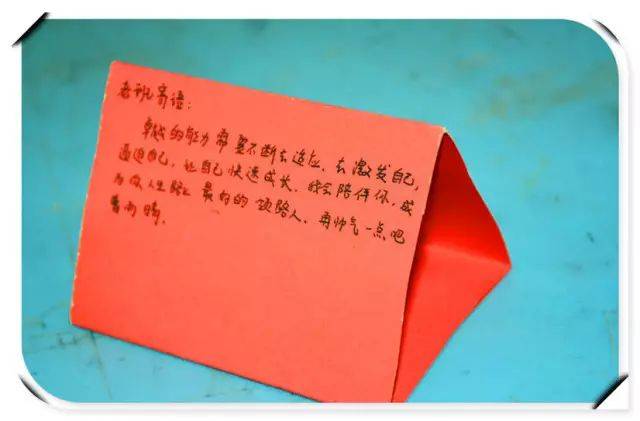 老班寄语:
卓越的能力需要不断去适应、去激发自己,
逼迫自己,让自己快速成长,我会陪伴你,成
为你人生路上最好的领路人,再帅气一点吧
曹雨晴.